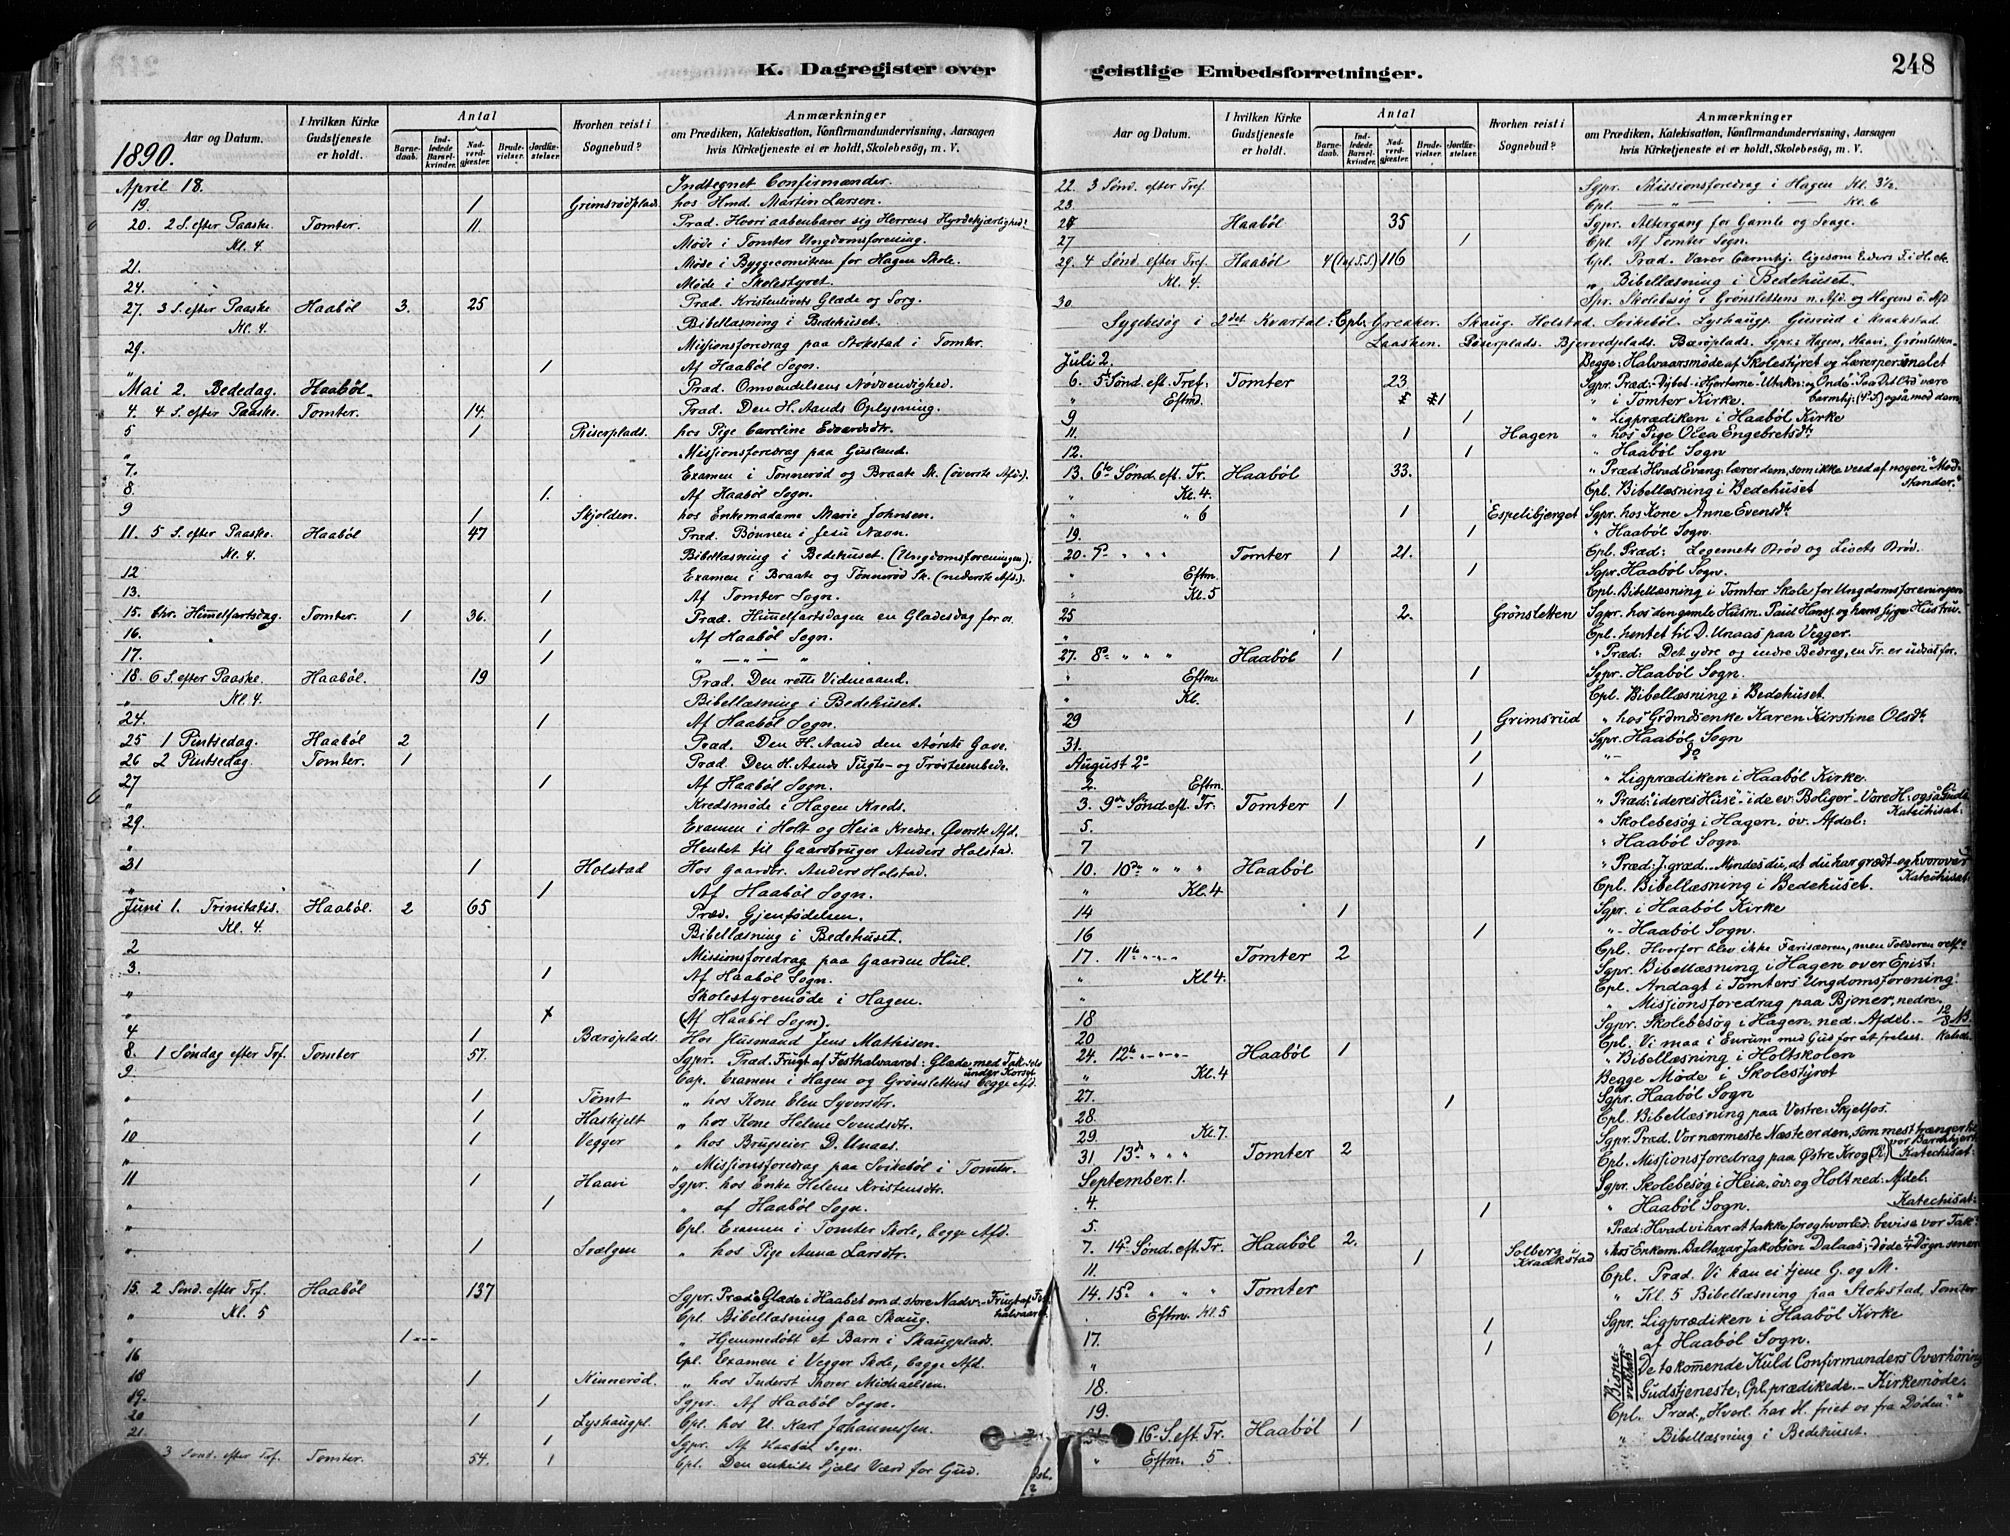 K. Dagregister over
Aar og Datum.
I hvilken Kirke Gudstjeneste er holdt.
Antal
Barnedaab.
Indledede Barselkvinder.
Nadverdgjester.
Brudevielser.
Jordfæstelser.
Hvorhen reist i Sognebud?
Anmærkninger
om Prædiken, Katekisation, Konfirmandundervisning, Aarsagen
hvis Kirketjeneste ei er holdt, Skolebesøg, m. V.
1890.
April 18. Indtegnet Confirmander.
19. 1 Grimsrødplads. hos Hmd. Martin Larsen.
20. 2 S. efter Paaske Tomter. 11 Præd. Hvori aabenbarer sig Herrens Hyrdekjærlighed?
Kl. 4. Møde i Tomter Ungdomsforening.
21. Møde i Byggecomiteen for Hagen Skole.
24. Møde i Skolestyret.
27. 3 S. efter Paaske Haabøl 3. 25 Præd. Kristenlivets Glæde og Sorg.
Kl. 4. Bibellæsning i Bedehuset.
29. Missionsforedrag paa Stokstad i Tomter.
" 1 Af Haabøl Sogn.
Mai 2. Bededag. Haabøl. Præd. Omvendelsens Nødvendighed.
4. 4 S. efter Paaske. Tomter. 14. Præd. Den H. Aands Oplysning.
5 1 Riserplads. hos Pige Caroline Edvardsdtr.
" Missionsforedrag paa Gusland.
7. Examen i Tonnerød og Braate Sk. (øverste Afd.).
8. 1. Af Haabøl Sogn.
9 1 Skjolden. hos Enkemadame Marie Johnsen.
11. 5 S. efter Paaske. Haabøl 47 Præd. Bønnen i Jesu Navn.
Kl. 4. Bibellæsning i Bedehuset. (Ungdomsforeningen).
12 Examen i Braate og Tønnerød Sk. (nederste Afd.).
13. 1 Af Tomter Sogn.
15. Chr. Himmelfartsdag. Tomter. 1 36. Præd. Himmelfartsdagen en Gladesdag for os.
16. 1 Af Haabøl Sogn.
17. 1 " — " — "
18. 6 S. efter Paaske. Haabøl. 19 Præd. Den rette Vidneaand.
" Kl. 4. Bibellæsning i Bedehuset.
24. 1 Af Haabøl Sogn.
25 1 Pintsedag. Haabøl 2 Præd. Den H. Aand den største Gave.
26 2 Pintsedag Tomter. 1 Præd. Den H. Aands Tugte- og Trøsteembede.
27 1 Af Haabøl Sogn.
" Kredsmøde i Hagen Kreds.
29. Examen i Holt og Heia Kredse. Øverste Afd.
" Hentet til Gaardbruger Anders Holstad.
31 1 Holstad Hos Gaardbr. Anders Holstad.
" 1 Af Haabøl Sogn.
Juni 1. Trinitatis. Haabøl. 2 65 Præd. Gjenfødelsen.
Kl. 4. Bibellæsning i Bedehuset.
2 Missionsforedrag paa Gaarden Hul.
3. 1 Af Haabøl Sogn.
" Skolestyremøde i Hagen.
" (Af Haabøl Sogn).
4 1 Bærøplads. Hos Husmand Jens Mathisen.
8. 1 Søndag efter Trf. Tomter 57. Sgpr. Præd. Frugt af Festhalvaaret: Glæde med Tak selv under Korset
9. Cap. Examen i Hagen og Grønslettens begge Afd.
" 1 Tomt " hos Kone Elen Syversdtr.
" 1 Haskjelt " hos Kone Helene Svendsdtr.
10 1 Vegger " hos Brugseier D. Unaas.
" " Missionsforedrag paa Svikebøl i Tomter.
11 1 Haavi Sgpr. hos Enke Helene Kristensdtr.
" 1 " af Haabøl Sogn.
" Cpl. Examen i Tomter Skole, begge Afd.
" 1 Svælgen " hos Pige Anna Larsdtr.
15. 2 Sønd. efter Trf. Haabøl 137 Sgpr. Præd: Glæde i Haabet om d. store Nadv.- Frugt af Festhalvaaret
" Kl. 5 Cpl. Bibellæsning paa Skaug.
" 1 --- " Hjemmedøbt et Barn i Skaugplads.
16 Cpl. Examen i Vegger Skole, begge Afd.
18 1 Kinnerød. " hos Inderst Thorer Michaelsen.
19. 1 Sgpr. Af Haabøl Sogn.
20 1 Lyshaugpl. Cpl. hos U. Karl Johannessen.
21. 1 Sgpr. Af Haabøl Sogn.
3 Sønd. efter Trf. Tomter. 54. 1 Cpl. Den enkelte Sjæls Værd for Gud.
geistlige Embedsforretninger.
248
Aar og Datum.
I hvilken Kirke Gudstjeneste er holdt.
Antal
Barnedaab.
Indledede Barselkvinder.
Nadverdgjester.
Brudevielser.
Jordfæstelser.
Hvorhen reist i Sognebud?
Anmærkninger
om Prædiken, Katekisation, Konfirmandundervisning, Aarsagen
hvis Kirketjeneste ei er holdt, Skolebesøg, m. V.
22. 3 Sønd. efter Tref. Sgpr. Missionsforedrag i Hagen Kl. 3½.
23. Cpl. — " — Kl. 6
Haabøl 35 Sgpr. Altergang for Gamle og Svage.
27 1 Cpl. Af Tomter Sogn.
29. 4 Sønd. efter Tref. Haabøl 116 Cpl. Præd. Værer barmhj. ligesom Eders F. i H. etc.
Kl. 4. " Bibellæsning i Bedehuset.
30 Spr. Skolebesøg i Grønslettens n. Afd. og Hagens ö. Afd
Sygebesøg i 2det Kvartal: Cpl: Greaker. Skaug. Holstad. Svikebøl. Lyshaugp. Gusrud i Kraakstad.
Laasken. Riserplads. Bjerverdplads. Bærøplads. Sgpr: Hagen, Haavi, Grønsletten.
Juli 2. Begge: Halvaarsmøde af Skolestyret og Lærerpersonalet
6. 5t Sønd. eft. Tref: Tomter 23 Sgpr. Præd:
" Eftmd. 1 " i Tomter Kirke.
9 1 " Ligprædiken i Haabøl Kirke
11. 1 Hagen " hos Pige Olea Engebretsdtr
12. 1 " Haabøl Sogn
13. 6te Sønd. eft. Tr. Haabøl 33. " Præd: Hvad Evang: lærer dem, som ikke veed af nogen "Modstander."
" Kl. 4. Cpl. Bibellæsning i Bedehuset
" " 6 1 Espelibjerget Sgpr. hos Kone Anne Evensdtr
19. 1 " Haabøl Sogn.
20. 7de " " " Tomter 1 21. Cpl. Præd: Legemets Brød og Livets Brød.
" Eftm. 1 Sgpr. Haabøl Sogn.
" Kl. 5 Cpl. Bibellæsning i Tomter Skole for Ungdomsforeningen
25 2. Grønsletten Sgpr. hos den gamle Husm. Paul Hans. og hans syge Hustru
" Cpl. hentet til D. Unaas paa Vegger.
27. 8de " " " Haabøl 1 " Præd: Det ydre og indre Bedrag, en Tr. er udsat for.
" Eftm. 1 Sgpr. Haabøl Sogn.
" Kl. Cpl. Bibellæsning i Bedehuset.
29 1 Grimsrud " hos Grdmdsenke Karen Kirstine Olsdtr
31. 1 Sgpr. Haabøl Sogn
August 2. 1 " - Do
2. Eftm. 1 " Ligprædiken i Haabøl Kirke.
3. 9de Sønd. eft. Tr. Tomter 1 " Præd: "i deres Huse" - i de ev. Boliger" - Vore H. også Guds Katechisat:
5. " Skolebesøg i Hagen, öv. Afdel:
7 1 " Haabøl Sogn.
10. 10de " " " Haabøl " Præd: J. græd. Mindes du, at du har grædt - og hvorover? Katechisat:
" Kl. 4 Cpl. Bibellæsning i Bedehuset.
14 1 Sgpr. i Haabøl Kirke
16 1 " - Haabøl Sogn.
17. 11te " - " - Tomter 2 Cpl. Hvorfor blev ikke Farisæeren, men Tolderen retf.?
" Kl. 4. Sgpr. Bibellæsning i Hagen over Epist:
" Cpl. Andagt i Tomters Ungdomsforening.
18 " Missionsforedrag paa Bjoner, nedre.
20 Sgpr. Skolebesøg i Hagen, ned. Afdel.
24. 12te - " - " - Haabøl 1 Cpl. Vi maa i Enrum med Gud for at frelses.
" Kl. 4 " Bibellæsning i Holtskolen
27. Begge Møde i Skolestyret
28. 1 Sgpr. Haabøl Sogn
29. Kl. 7. Cpl. Bibellæsning paa Vestre Skjelfos.
31 13de " " " Tomter 2 Sgpr. Præd. Vor nærmeste Næste er den, som mest trænger til vor Barmhjert. Katechisat:
September 1. Cpl. Missionsforedrag paa Østre Krog (K)
4. Sgpr. Skolebesøg i Heia, öv. og Holt ned. Afdel:
5. 1 " Haabøl Sogn. Katechisat:
7. 14de Sønd. eft. Tr. Haabøl 2. " Præd: Hvad vi har at takke for og hvorled. bevise vor Tak.
11. 1 Solberg i Kraakstad " hos Enkem. Baltazar Jakobsön Dalaas; døde ½ Døgn senere
14. 15de " " Tomter Cpl. Præd. Vi kan ei tjene G. og M.
Eftm. Kl. 5 " Kl. 5 Bibellæsning paa Stokstad, Tomter
17. 1 Sgpr. Ligprædiken i Haabøl Kirke
" 1 af Haabøl Sogn.
18. Bispevisitats De tokommende Kuld Confirmanders Overhøring
19. Gudstjeneste, Cpl. prædikede. - Kirkemøde.
21 16 S. eft. Tr. Haabøl 1 Cpl. Præd. "Hverl. har H. friet os fra Døden?"
" Eftm. 5 " Bibellæsning i Bedehuset.